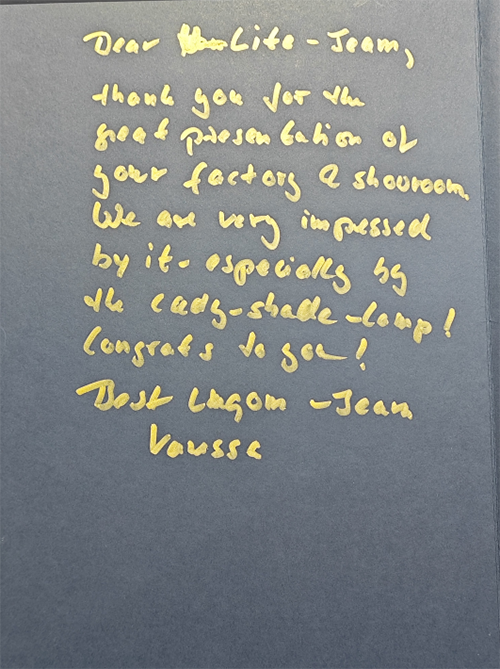 Dear Lite-Team,
thank you for the
great presentation of
your factory & showroom.
We are very impressed
by it - especially by
the lady-shade-lamp!
Congrats to you!
Best Lagom-Team